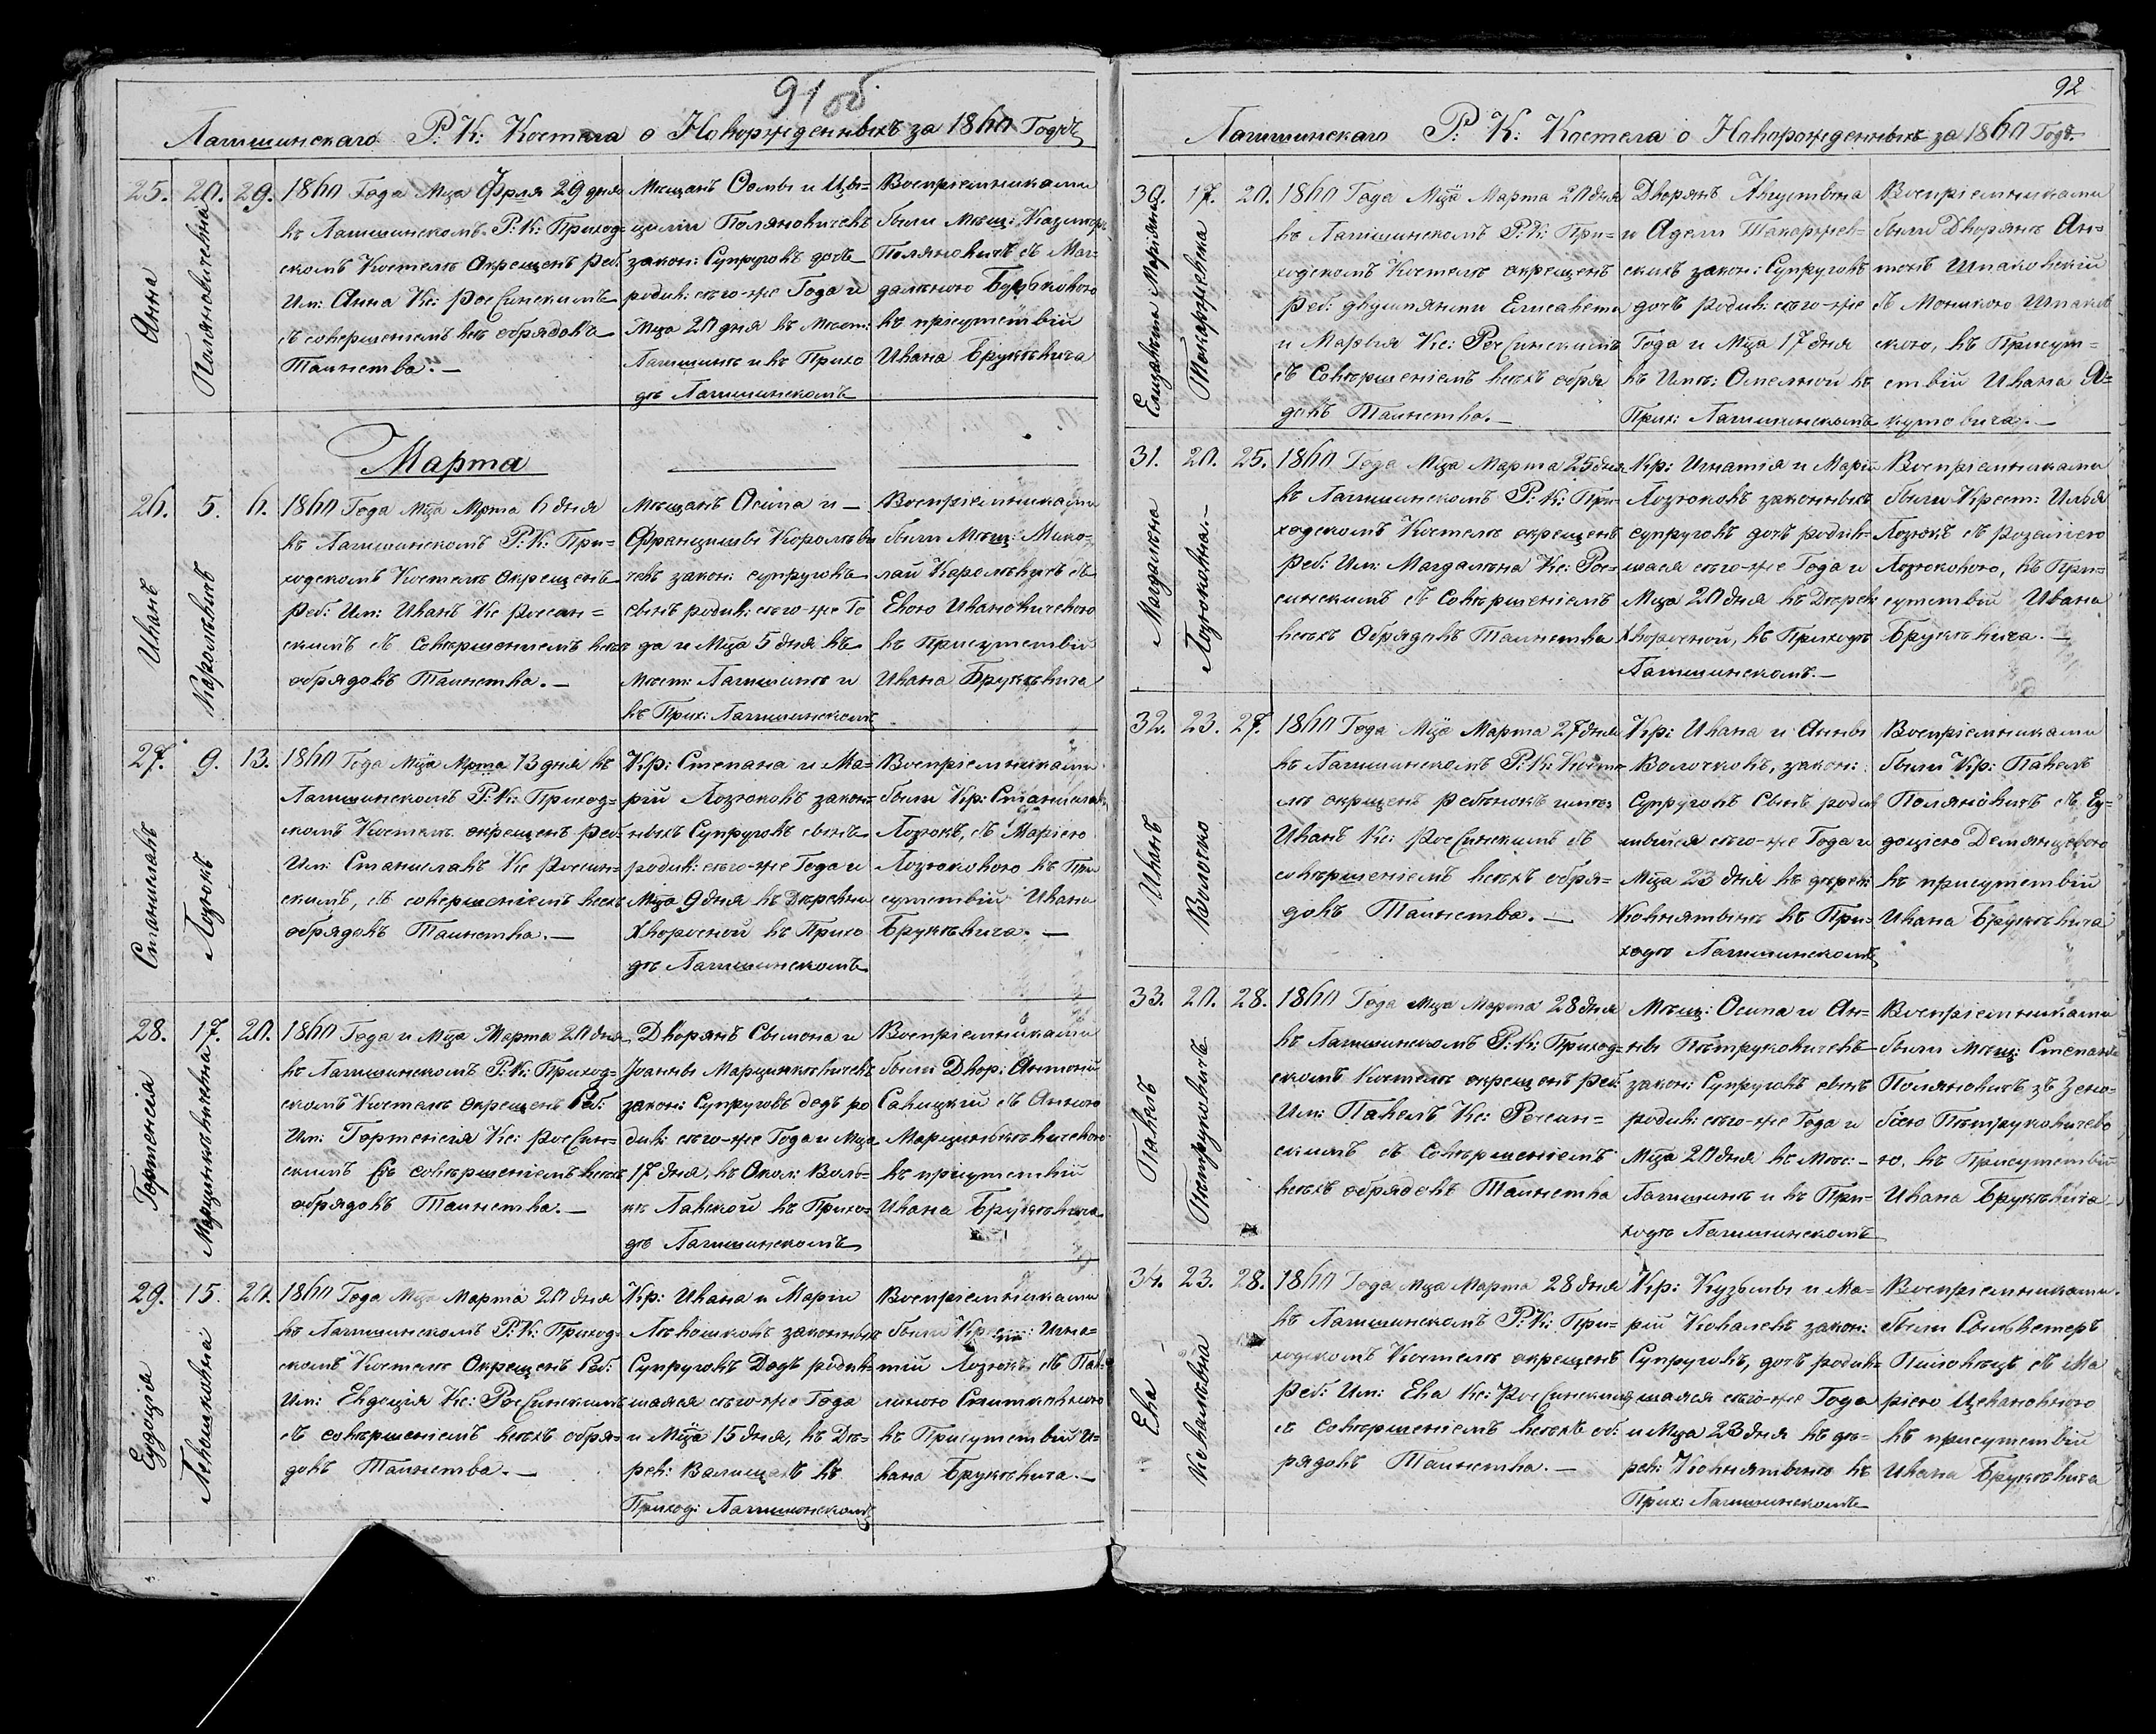 91 об
Лагишинскаго Р. К: Костела о Новорожденныхъ за 1860 Годъ
25. 20. 29.
Анна
Поляновичевна
1860 Года Мца Фрля 29 дня
въ Лагишинскомъ Р: К: Приход=
скомъ Костелѣ Окрещенъ Реб:
Им: Анна Кс: Россинскимъ
съ совершениемъ всѣ обрядов
Таинства. —
Мещанъ Сомы и Цы=
цилiи Поляновичевъ
закон: Супруговъ дочь
родив: сего-же Года и
Мца 20 дня въ Мѣст:
Лагишинѣ и въ Прихо
дѣ Лагишинскомъ
Воспрiемниками
были Мещ: Казимиръ
Поляновичъ съ Маг=
даленою
въ присутствiи
Ивана Брукѣвича
Марта
26. 5. 6.
Иванъ
Каролѣвичъ
1860 Года Мца Мрта 6 дня
въ Лагишинскомъ Р: К: При=
ходскомъ Костелѣ Окрещенъ
Реб: Им: Иванъ Кс Россин=
скимъ съ Совершениемъ всѣхъ
обрядовъ Таинства. —
Мѣщанъ Осипа и —
Францишки Королѣви
чевъ закон: супруговъ
сынъ родив: сего-же Го
да и Мца 5 дня въ
Мѣст: Лагишинѣ и
въ Прих: Лагишинскомъ
Воспрiемниками
были Мѣщ: Мико=
лай Каролѣвичъ съ
Евою Ивановичевою
въ Присутствiи
Ивана Брукѣвича
27. 9. 13.
Станиславъ
Лозюкъ
1860 Года Мца Мрта 13 дня въ
Лагишинскомъ Р: К: Приход=
скомъ Костелѣ окрещенъ реб:
Им: Станиславъ Кс Россин=
скимъ, съ совершенiемъ всѣхъ
обрядовъ Таинства. —
Кр: Степана и Ма=
рiи Лозюковъ закон=
ныхъ Супруговъ сынъ
родив: сего-же Года и
Мца 9 дня въ Деревни
Хворосной въ Прихо
дѣ Лагишинскомъ
Воспрiемниками
были Кр: Станиславъ
Лозюкъ, съ Марiею
Лозюковою въ При
сутствiи Ивана
Брукѣвича. —
28. 17. 20.
Гортенсiя
Марцинкѣвичевна
1860 Года и Мца Марта 20 дня
въ Лагишинскомъ Р: К: Приход=
скомъ Костелѣ Окрещенъ Реб:
Им: Гортенсiя Кс: Россин=
скимъ Съ совѣршенiемъ всѣхъ
обрядовъ Таинства. —
Дворянъ Сымона и
Iоанны Марцинкѣвичевъ
закон: Супруговъ дочь ро
див: сего-же Года и Мца
17 дня, въ Окол:
Лавской въ Прихо=
дѣ Лагишинскомъ
Воспрiемниками
были Двор: Антонiй
Савицкiй съ Анною
Марцинкѣвичевою
въ присутствiи
Ивана Брукѣвича
29. 15. 20.
Еудоцiя
Левошковна
1860 Года Мца Марта 20 дня
въ Лагишинскомъ Р: К: Приход=
скомъ Костелѣ Окрещенъ Реб:
Им: Евдоцiя Кс: Россинскимъ
съ совѣршенiемъ всѣхъ обря=
довъ Таинства. —
Кр: Ивана и Марiи
Лѣвошковъ законныхъ
Супруговъ Дочь родив=
шаяся сего-же Года
и Мца 15 дня, въ Де=
рев: Валищахъ въ
Приход: Лагишинскомъ
Воспрiемниками
были Крест: Игна=
тiй Лозюкъ съ Пав=
линою
въ Присутствiи И=
вана Брукѣвича. —
92
Лагишинскаго Р: К: Костела о Новорожденныхъ за 1860 Годъ.
30. 17. 20.
Елизавета Марiянна
Токаржевска
1860 Года Мца Марта 20 дня
въ Лагишинскомъ Р: К: При=
ходскомъ Костелѣ окрещенъ
Реб: двуимянами Елисавета
и Марыя Кс: Россинскимъ
съ Совѣршенiемъ всѣхъ обря
довъ Таинства. —
Дворянъ Августына
и Адели Токаржев=
скихъ закон: Супруговъ
дочь родив: сего-же
Года и Мца 17 дня
въ Имѣ: Омелной въ
Прих: Лагишинскомъ
Воспрiемниками
были Дворянъ Ан=
тонъ Шпаковскiй
съ Моникою Шпаков
скою, въ Присут=
ствiи Ивана Я=
кутовича. —
31. 20. 25.
Магдалѣна
Лозюковна. —
1860 Года Мца Марта 25 дня
въ Лагишинскомъ Р: К: При=
ходскомъ Костелѣ окрещенъ
Реб: Им: Магдалѣна Кс: Рос=
синскимъ съ Совѣршенiемъ
всѣхъ Обрядовъ Таинства
Кр: Игнатiя и Марiи
Лозюковъ законныхъ
супруговъ дочь родив=
шаяся сего-же Года и
Мца 20 дня въ Дѣрев:
Хворосной, въ Приходѣ
Лагишинскомъ. —
Воспрiемниками
были Крест: Илья
Лозюкъ съ Розалiею
Лозюковою, въ При=
сутствiи Ивана
Брукѣвича. —
32. 23. 27.
Иванъ
Волочко
1860 Года Мца Марта 27 дня
въ Лагишинскомъ Р: К: Косте=
лѣ окрещенъ ребенокъ имѣн:
Иванъ Кс: Россинскимъ съ
совѣршенiемъ всѣхъ обря=
довъ Таинства. —
Кр: Ивана и Анны
Волочковъ, закон:
Супруговъ Сынъ родив
шыйся сего-же Года и
Мца 23 дня въ дерев:
Ковнятынѣ въ При=
ходѣ Лагишинскомъ
Воспрiемниками
были Кр: Павелъ
Поляновичъ съ Еу=
доцiею Демянцевою
въ присутствiи
Ивана Брукѣвича
33. 20. 28.
Павелъ
Пѣтруковичъ
1860 Года Мца Марта 28 дня
въ Лагишинскомъ Р: К: Приход=
скомъ Костелѣ окрещенъ Реб:
Им: Павелъ Кс: Россин=
скимъ съ Совѣршенiемъ
всѣхъ обрядовъ Таинства
Мѣщ: Осипа и Ан=
ны Пѣтруковичевъ
закон: Супруговъ сынъ
родив: сего-же Года и
Мца 20 дня въ Мѣс: —
Лагишинѣ и въ При=
ходѣ Лагишинскомъ
Воспрiемниками
были Мѣщ: Степанъ
Поляновичъ зъ Зено=
бiею Пѣтруковичево
ю. въ Присутствiи
Ивана Брукѣвича
34. 23. 28.
Ева
Ковалѣвна
1860 Года Мца Марта 28 дня
въ Лагишинскомъ Р: К: При=
ходскомъ Костелѣ окрещенъ
Реб: Им: Ева Кс: Россинским
съ Совѣршенiемъ всѣхъ об:
рядовъ Таинства. —
Кр: Кузьмы и Ма=
рiи Ковалевъ закон:
Супруговъ, дочь родив=
шаяся сего-же Года
и Мца 23 дня въ дѣ=
рев: Ковнятынѣ въ
Прих: Лагишинскомъ
Воспрiемниками.
были Сыльвестеръ
съ Ма
рiею
въ присутствiи
Ивана Брукѣвича